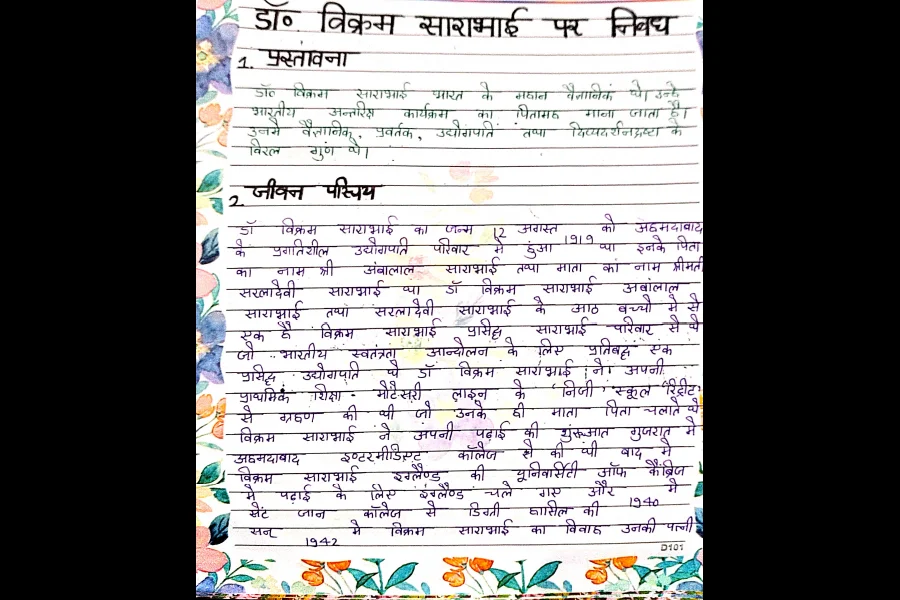 डॉ॰ विक्रम साराभाई पर निबंध
1. प्रस्तावना
डॉ॰ विक्रम साराभाई भारत के महान वैज्ञानिक थे। उन्हें
भारतीय अन्तरिक्ष कार्यक्रम का पितामह माना जाता है।
उनमें वैज्ञानिक, प्रवर्तक, उद्योगपति तथा दिव्यदर्शनद्रष्टा के
विरल गुण थे।
2. जीवन परिचय
डॉ विक्रम साराभाई का जन्म 12 अगस्त 1919 को अहमदाबाद
के प्रगतिशील उद्योगपति परिवार मे हुआ था इनके पिता
का नाम श्री अंबालाल साराभाई तथा माता का नाम श्रीमती
सरलादेवी साराभाई था डॉ विक्रम साराभाई अंबालाल
साराभाई तथा सरलादेवी साराभाई के आठ बच्चो मे से
एक है विक्रम साराभाई प्रसिद्ध साराभाई परिवार से थे
जो भारतीय स्वतंत्रता आन्दोलन के लिए प्रतिबद्ध एक
प्रसिद्ध उद्योगपति थे डॉ विक्रम साराभाई ने अपनी
प्राथमिक शिक्षा मोटेसरी लाइन के निजी स्कूल 'रिट्रीट'
से ग्रहण की थी जो उनके ही माता पिता चलाते थे
विक्रम साराभाई ने अपनी पढ़ाई की शुरूआत गुजरात मे
अहमदाबाद इण्टरमीडिएट कॉलेज से की थी बाद मे
विक्रम साराभाई इंग्लैण्ड की यूनिवर्सिटी ऑफ कैंब्रिज
मे पढ़ाई के लिए इंग्लैण्ड चले गए और 1940 मे
सेंट जान कॉलेज से डिग्री हासिल की
सन् 1942 मे विक्रम साराभाई का विवाह उनकी पत्नी
D101